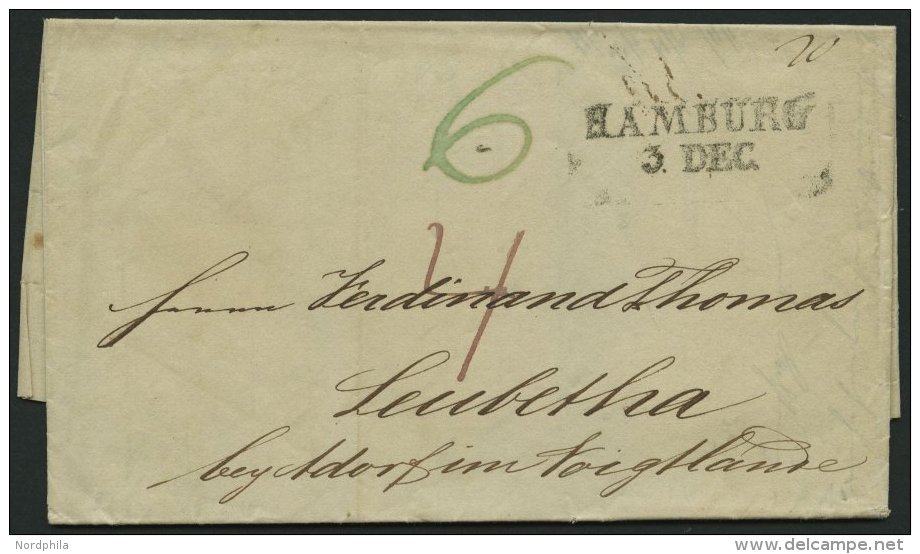 20
6
HAMBURG
3. DEC.
4
Herrn Ferdinand Thomas
Leubetha
bey Adorf im Voigtlande
Nordphila
delcampe.net